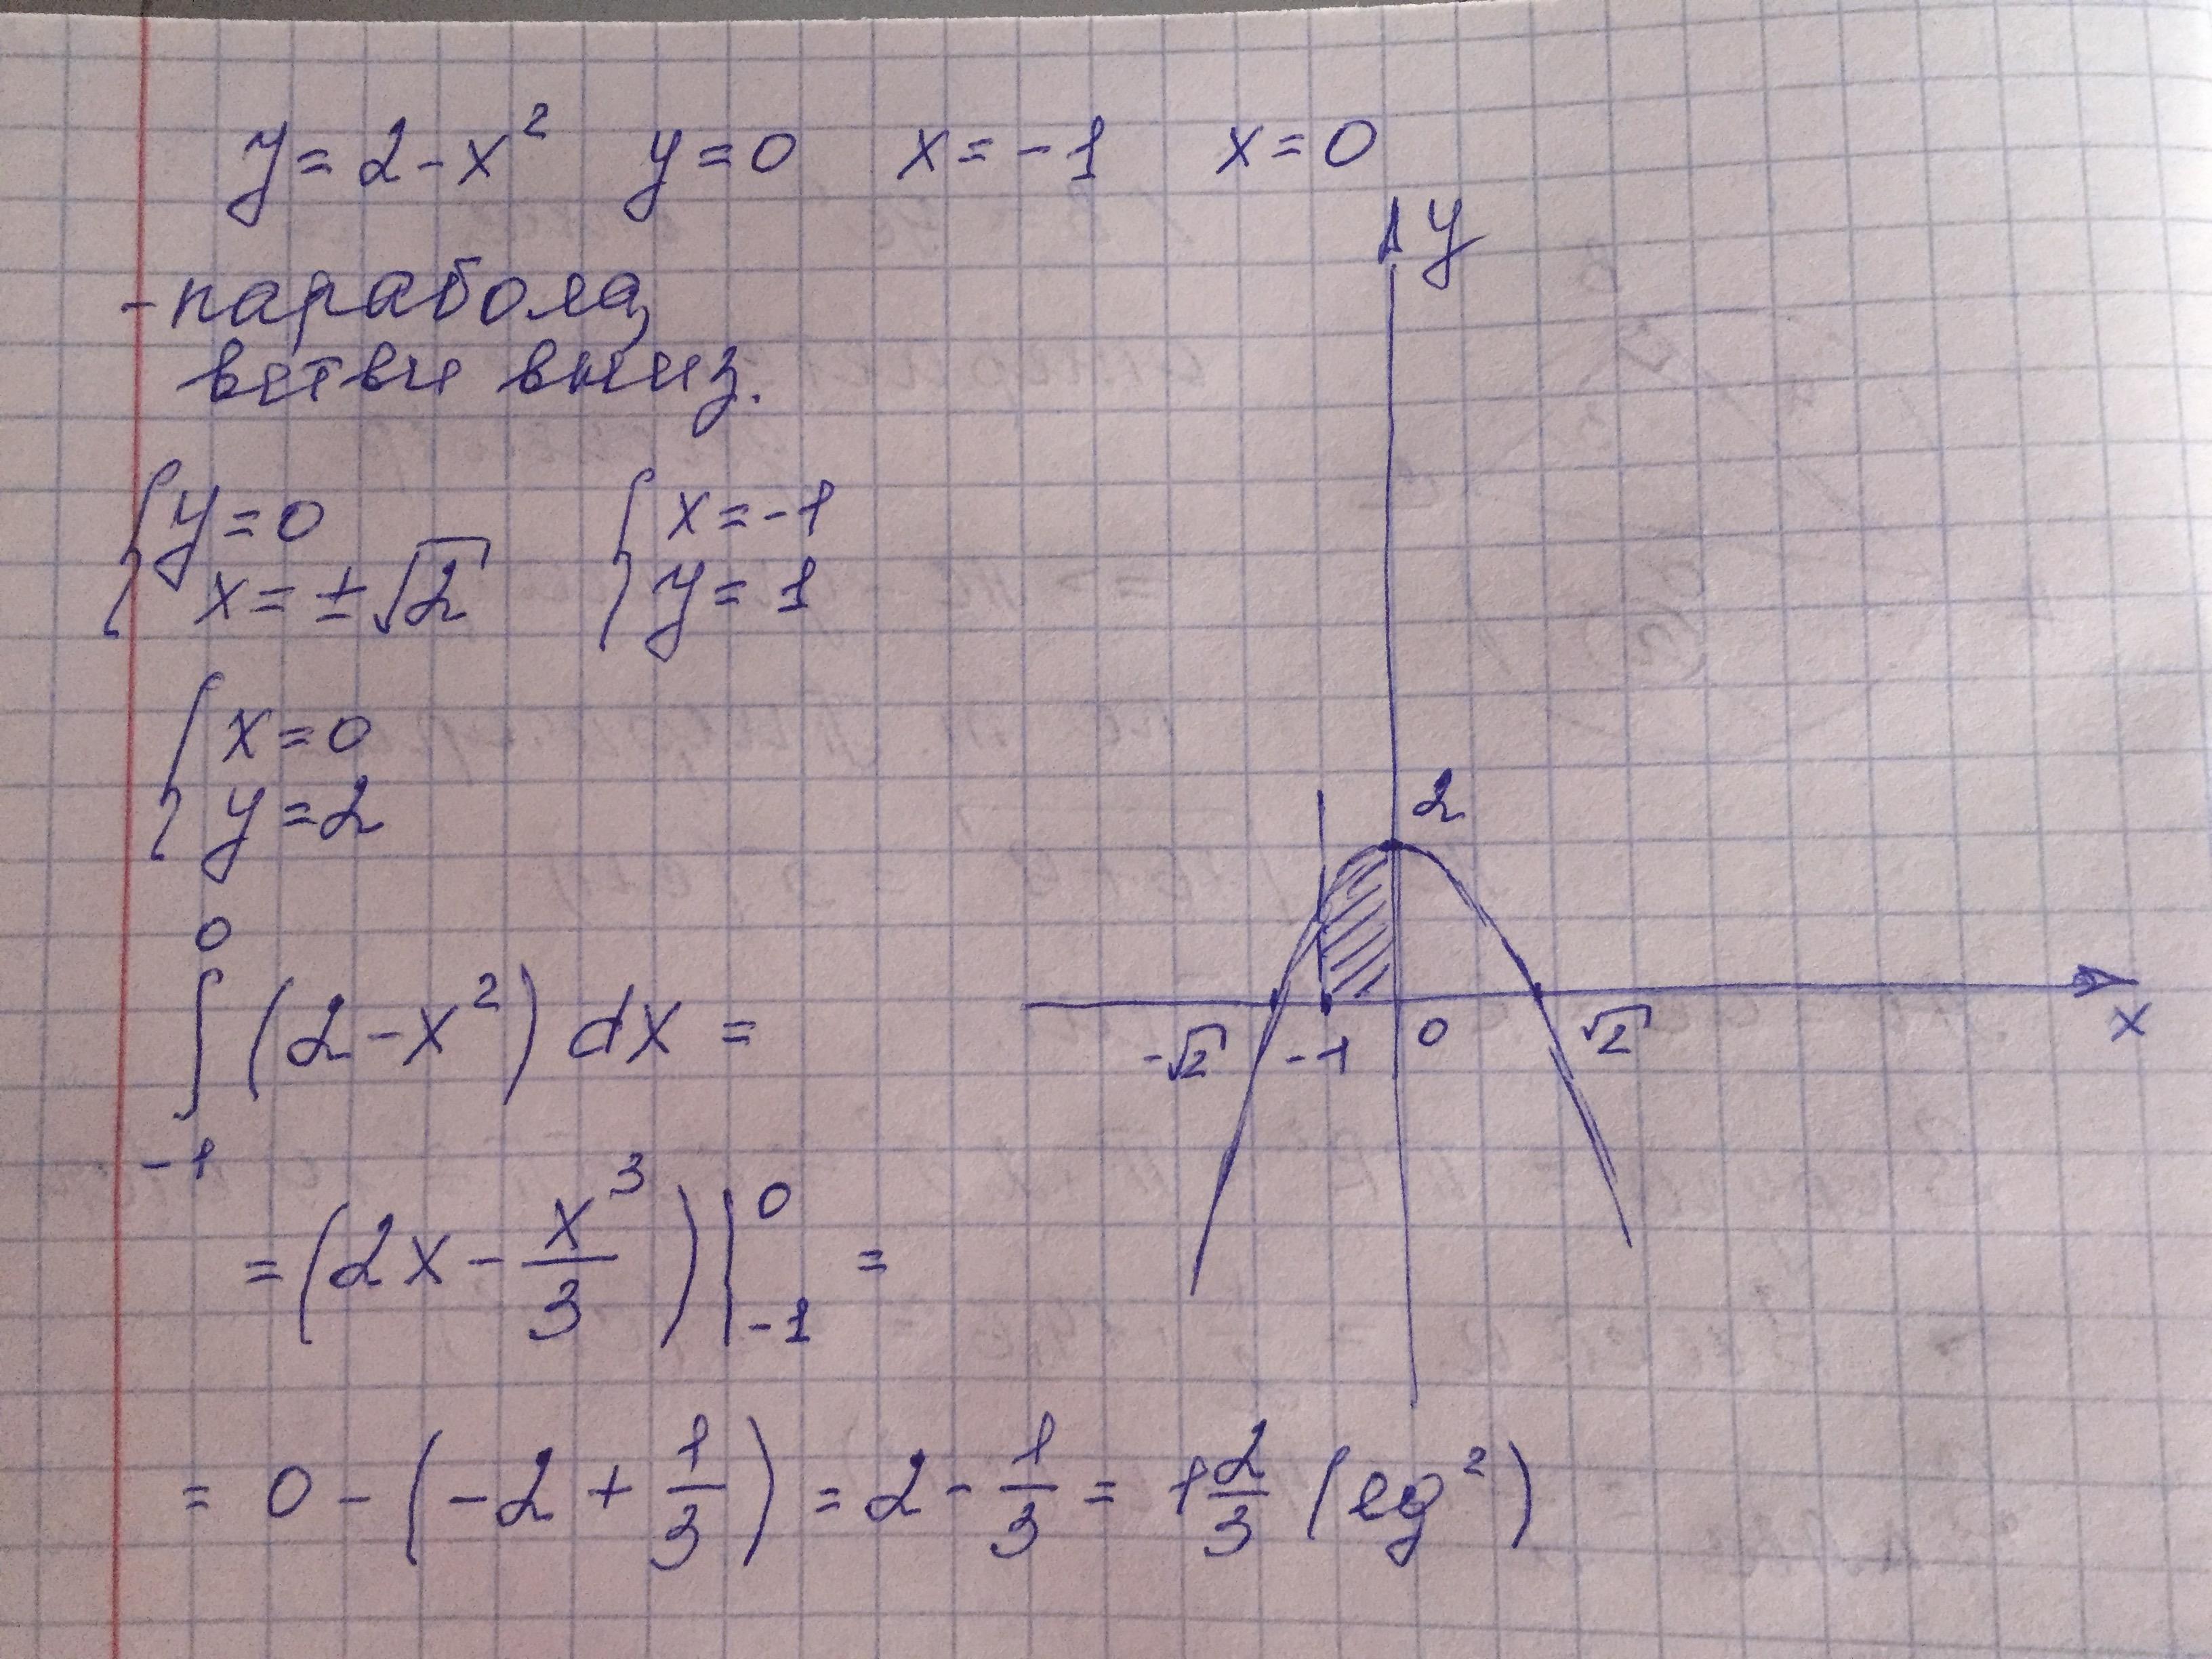 y = 2 - x² y = 0 x = -1 x = 0
- парабола,
ветви вниз.
{ y = 0 { x = -1
x = ±√2 y = 1
{ x = 0
y = 2
0
∫ (2 - x²) dx =
-1
= (2x - x³/3) |⁰₋₁ =
= 0 - (-2 + 1/3) = 2 - 1/3 = 1 2/3 (ед²)
y
2
-√2 -1 0 √2 x